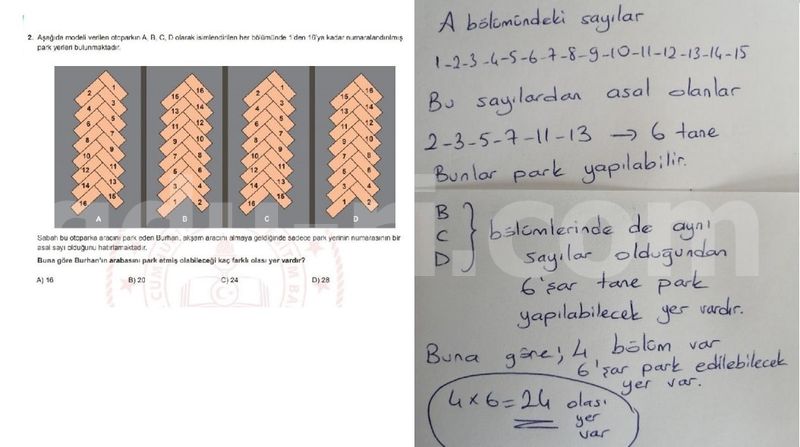 2. Aşağıda modeli verilen otoparkın A, B, C, D olarak isimlendirilen her bölümünde 1'den 16'ya kadar numaralandırılmış
park yerleri bulunmaktadır.
2 1 15 16 2 1 15 16
4 3 13 14 4 3 13 14
6 5 11 12 6 5 11 12
8 7 9 10 8 7 9 10
10 9 7 8 10 9 7 8
12 11 5 6 12 11 5 6
14 13 3 4 14 13 3 4
16 15 1 2 16 15 1 2
A B C D
Sabah bu otoparka aracını park eden Burhan, akşam aracını almaya geldiğinde sadece park yerinin numarasının bir
asal sayı olduğunu hatırlamaktadır.
Buna göre Burhan'ın arabasını park etmiş olabileceği kaç farklı olası yer vardır?
A) 16 B) 20 C) 24 D) 28
A bölümündeki sayılar
1-2-3-4-5-6-7-8-9-10-11-12-13-14-15
Bu sayılardan asal olanlar
2-3-5-7-11-13 → 6 tane
Bunlar park yapılabilir.
B
C
D
bölümlerinde de aynı
sayılar olduğundan
6'şar tane park
yapılabilecek yer vardır.
Buna göre; 4 bölüm var
6'şar park edilebilecek
yer var.
4 x 6 = 24 olası
yer
var